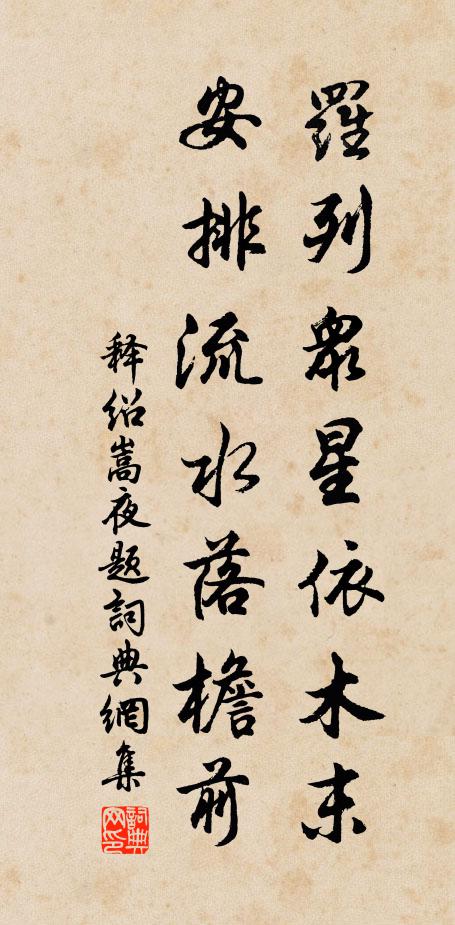 羅列衆星依木末
安排流水落檐前
释绍嵩夜題詞典網集
詞典网印